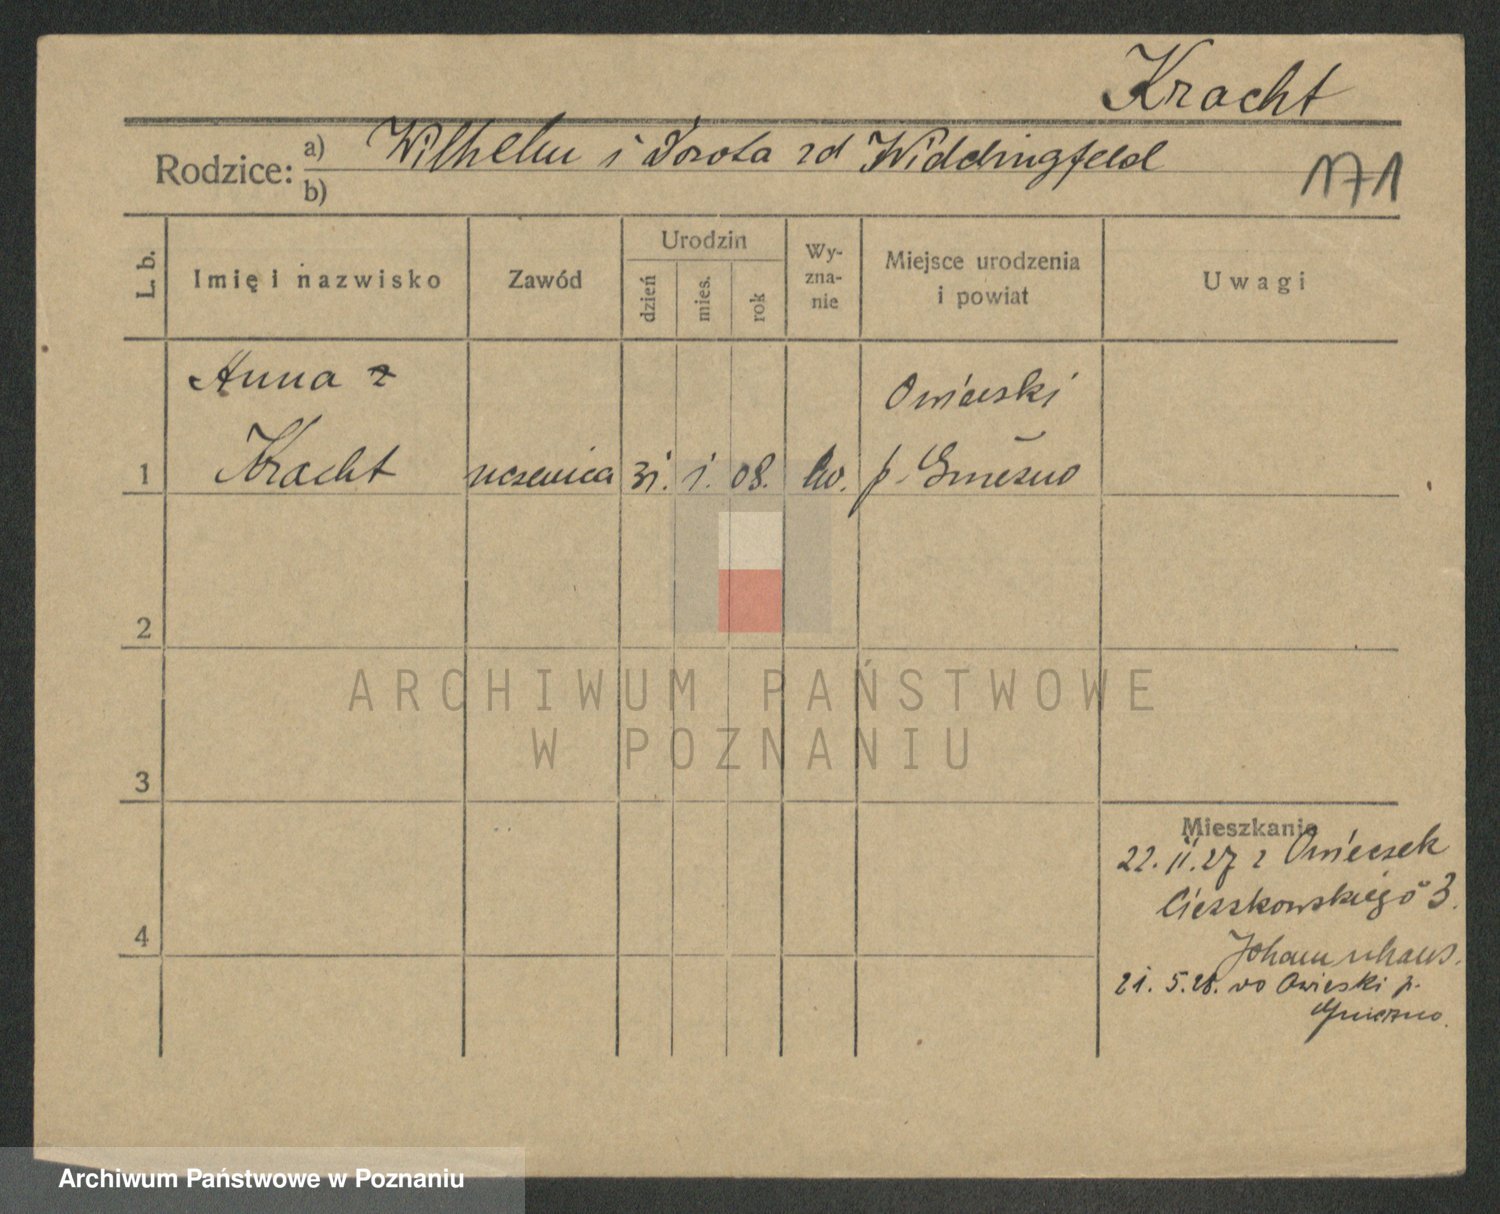 Kracht
Rodzice: a) Wilhelm i Dorota zd Widdingfeld
b)
171
L. b.
Imię i nazwisko
Zawód
Urodzin
dzień
mies.
rok
Wy-
zna-
nie
Miejsce urodzenia
i powiat
Uwagi
Anna z
Owieczki
1 Kracht uczenica 31. 1. 08. ew. p. Gniezno
2
3
4
ARCHIWUM PAŃSTWOWE
W POZNANIU
Mieszkanie
22. 11. 27 z Owieczek
Cieszkowskiego 3.
21. 5. 28. do Owieski p.
Gniezno.
Archiwum Państwowe w Poznaniu